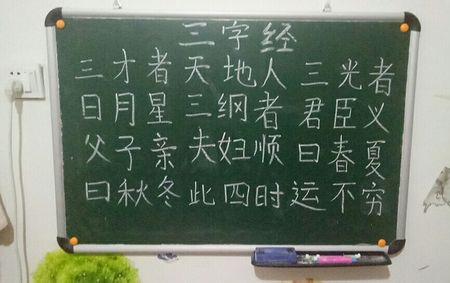 三字经
三才者 天地人 三光者
日月星 三纲者 君臣义
父子亲 夫妇顺 曰春夏
曰秋冬 此四时 运不穷